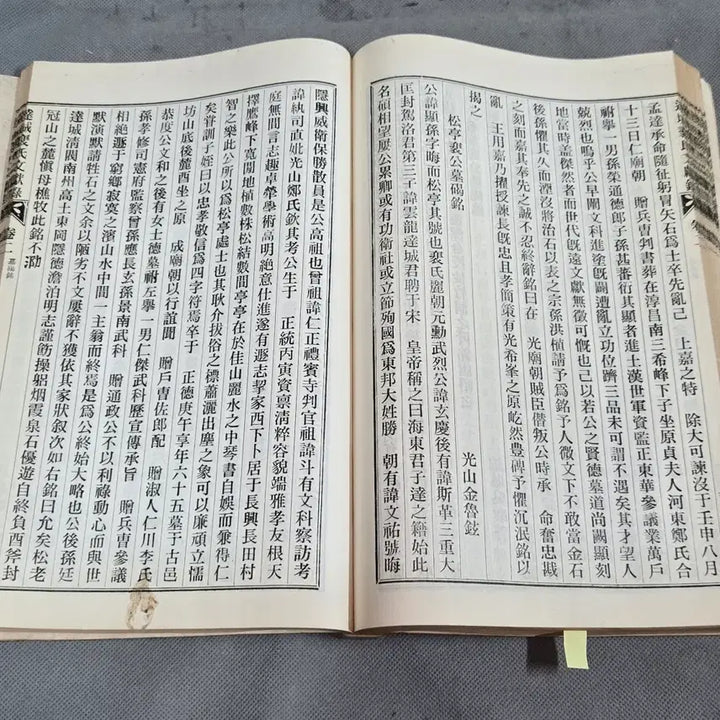 孟達承命隨征躬冒矢石爲士卒先亂已 上嘉之特 除大可諫沒于壬申八月
十三日仁廟朝 贈兵曹判書葬在淳昌南三希峰下子坐原貞夫人河東鄭氏合
祔擧一男孫榮通德郎子孫甚蕃衍其顯者進士漢世軍資監正東華參議業萬戶
兢烈也嗚乎公早闡文科進塗旣闢遭亂立功位躋三品未可謂不遇矣其才望人
地當時蓋傑然者而世代旣遠文獻無徵可慨也已以若公之賢德墓道尙闕顯刻
後孫懼其久而湮沒將治石以表之宗孫洪植請予爲銘予人微文下不敢當金石
之刻而嘉其奉先之誠不忍終辭銘曰在 光廟朝賊臣僭叛公時承 命奮忠戡
亂 王用嘉乃擢授諫長旣忠且孝簡策有光希峯之原屹然豊碑予懼沉泯銘以
揭之 光山金魯鉉
松亭裵公墓碣銘
公諱顯孫字晦而松亭其號也裵氏麗朝元勳武烈公諱玄慶後有諱斯革三重大
匡封駕洛君第三子諱雲龍達城君聘于宋 皇帝稱之曰海東君子達之籍始此
名碩相望厥公累卿或有功衛社或立節殉國爲東邦大姓勝 朝有諱文祐號晦
隱興威衛保勝散員是公高祖也曾祖諱仁正禮賓寺判官祖諱斗有文科察訪考
諱執司直妣光山鄭氏欽其考公生于 正統丙寅資禀淸粹容貌端雅孝友根天
庭無間言志趣卓犖學術高明絶意仕進遂有遯志挈家西下卜居于長興長田村
擇鷹峰下寬閒地植數株松結數間亭亭在於佳山麗水之中琴書自娛而兼得仁
智之樂此公所以爲松亭處士也其耿介拔俗之標蕭灑出塵之象可以廉頑立懦
矣甞訓子姪曰以忠孝敬信爲四字符焉卒于 正德庚午享年六十五墓于古邑
坊山底後麓酉坐之原 成廟朝以行誼聞 贈戶曹佐郎配 贈淑人仁川李氏
恭度公文和之後有女士德墓祔左擧一男仁傑武科歷宣傳承旨 贈兵曹參議
孫孝修司憲府監察曾孫應長玄孫景南武科 贈通政公不以利祿動心而與世
相絶遯于窮鄉寂寞之濱山水中間一主翁而終焉是爲公終始大略也公後孫廷
默演默請牲石之文余以陋劣不文屢辭不獲依其家狀叙次如右銘曰允矣松老
達城淸閥南州高士東岡隱德澹泊明志謹飭操躬烟霞泉石優遊自終負酉斧封
冠山之麓愼毋樵牧此銘不泐
達城裵氏文獻錄 卷二 墓碣銘